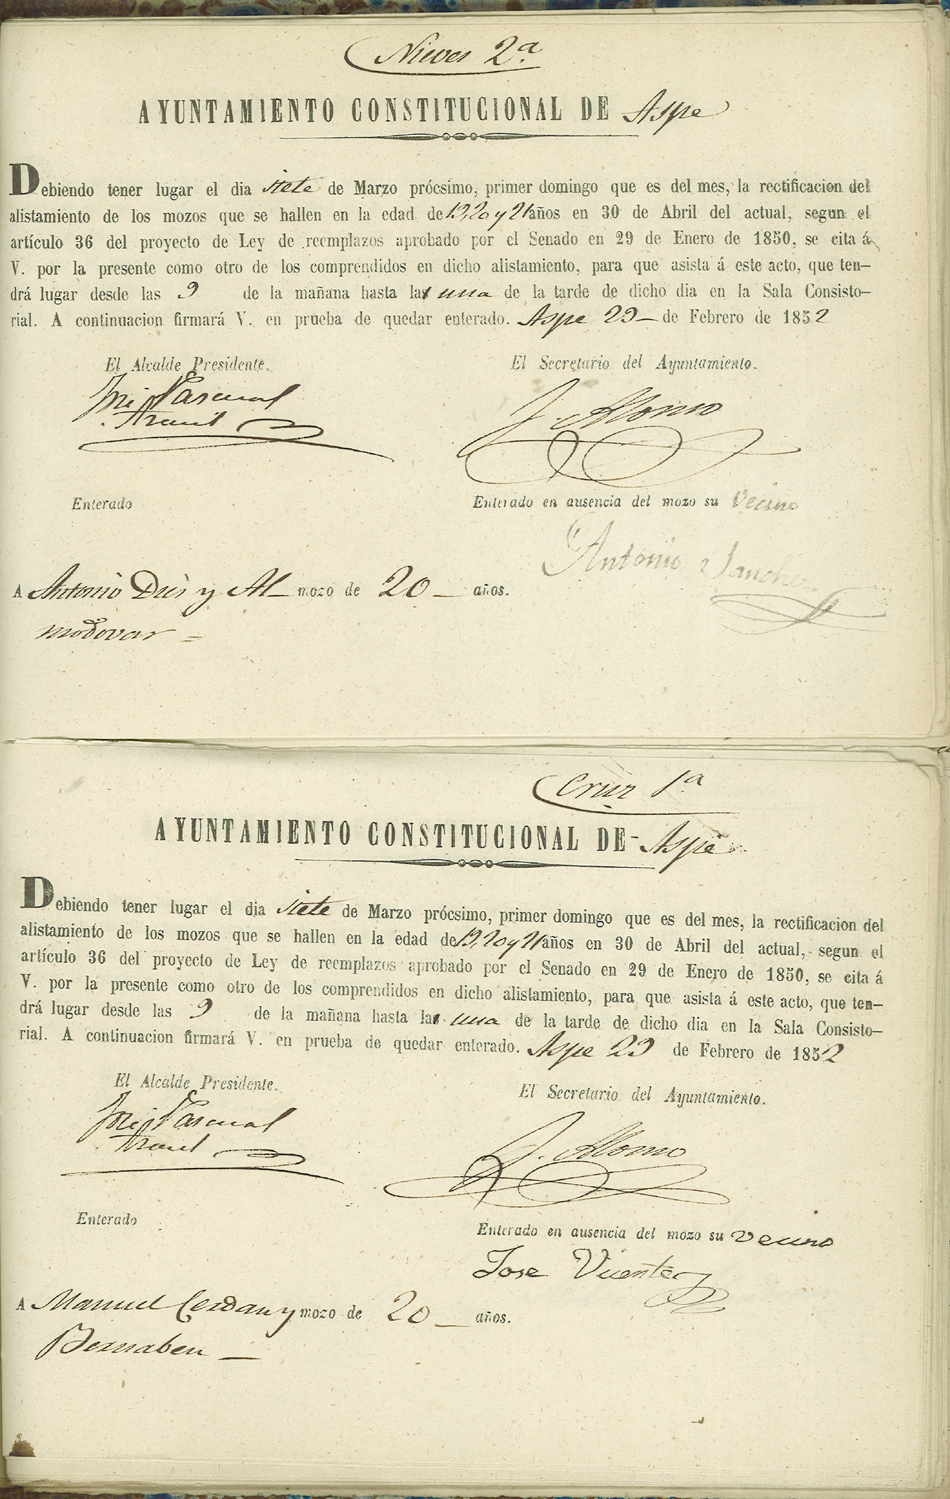 Nieves 2ª
AYUNTAMIENTO CONSTITUCIONAL DE Aspe
Debiendo tener lugar el dia siete de Marzo prócsimo, primer domingo que es del mes, la rectificacion del
alistamiento de los mozos que se hallen en la edad de 19, 20 y 21 años en 30 de Abril del actual, segun el
artículo 36 del proyecto de Ley de reemplazos aprobado por el Senado en 29 de Enero de 1850, se cita á
V. por la presente como otro de los comprendidos en dicho alistamiento, para que asista á este acto, que ten-
drá lugar desde las 9 de la mañana hasta la una de la tarde de dicho dia en la Sala Consisto-
rial. A continuacion firmará V. en prueba de quedar enterado. Aspe 29 de Febrero de 1852
El Alcalde Presidente. El Secretario del Ayuntamiento.
Pascual J. Alonso
Enterado Enterado en ausencia del mozo su vecino
Antonio Sanchez
A Antonio Dies y Al- mozo de 20 años.
modovar
Cruz 1ª
AYUNTAMIENTO CONSTITUCIONAL DE Aspe
Debiendo tener lugar el dia siete de Marzo prócsimo, primer domingo que es del mes, la rectificacion del
alistamiento de los mozos que se hallen en la edad de 19, 20 y 21 años en 30 de Abril del actual, segun el
artículo 36 del proyecto de Ley de reemplazos aprobado por el Senado en 29 de Enero de 1850, se cita á
V. por la presente como otro de los comprendidos en dicho alistamiento, para que asista á este acto, que ten-
drá lugar desde las 9 de la mañana hasta la una de la tarde de dicho dia en la Sala Consisto-
rial. A continuacion firmará V. en prueba de quedar enterado. Aspe 29 de Febrero de 1852
El Alcalde Presidente. El Secretario del Ayuntamiento.
Pascual J. Alonso
Enterado Enterado en ausencia del mozo su vecino
Jose Vicente
A Manuel Cerdan y mozo de 20 años.
Bernabeu